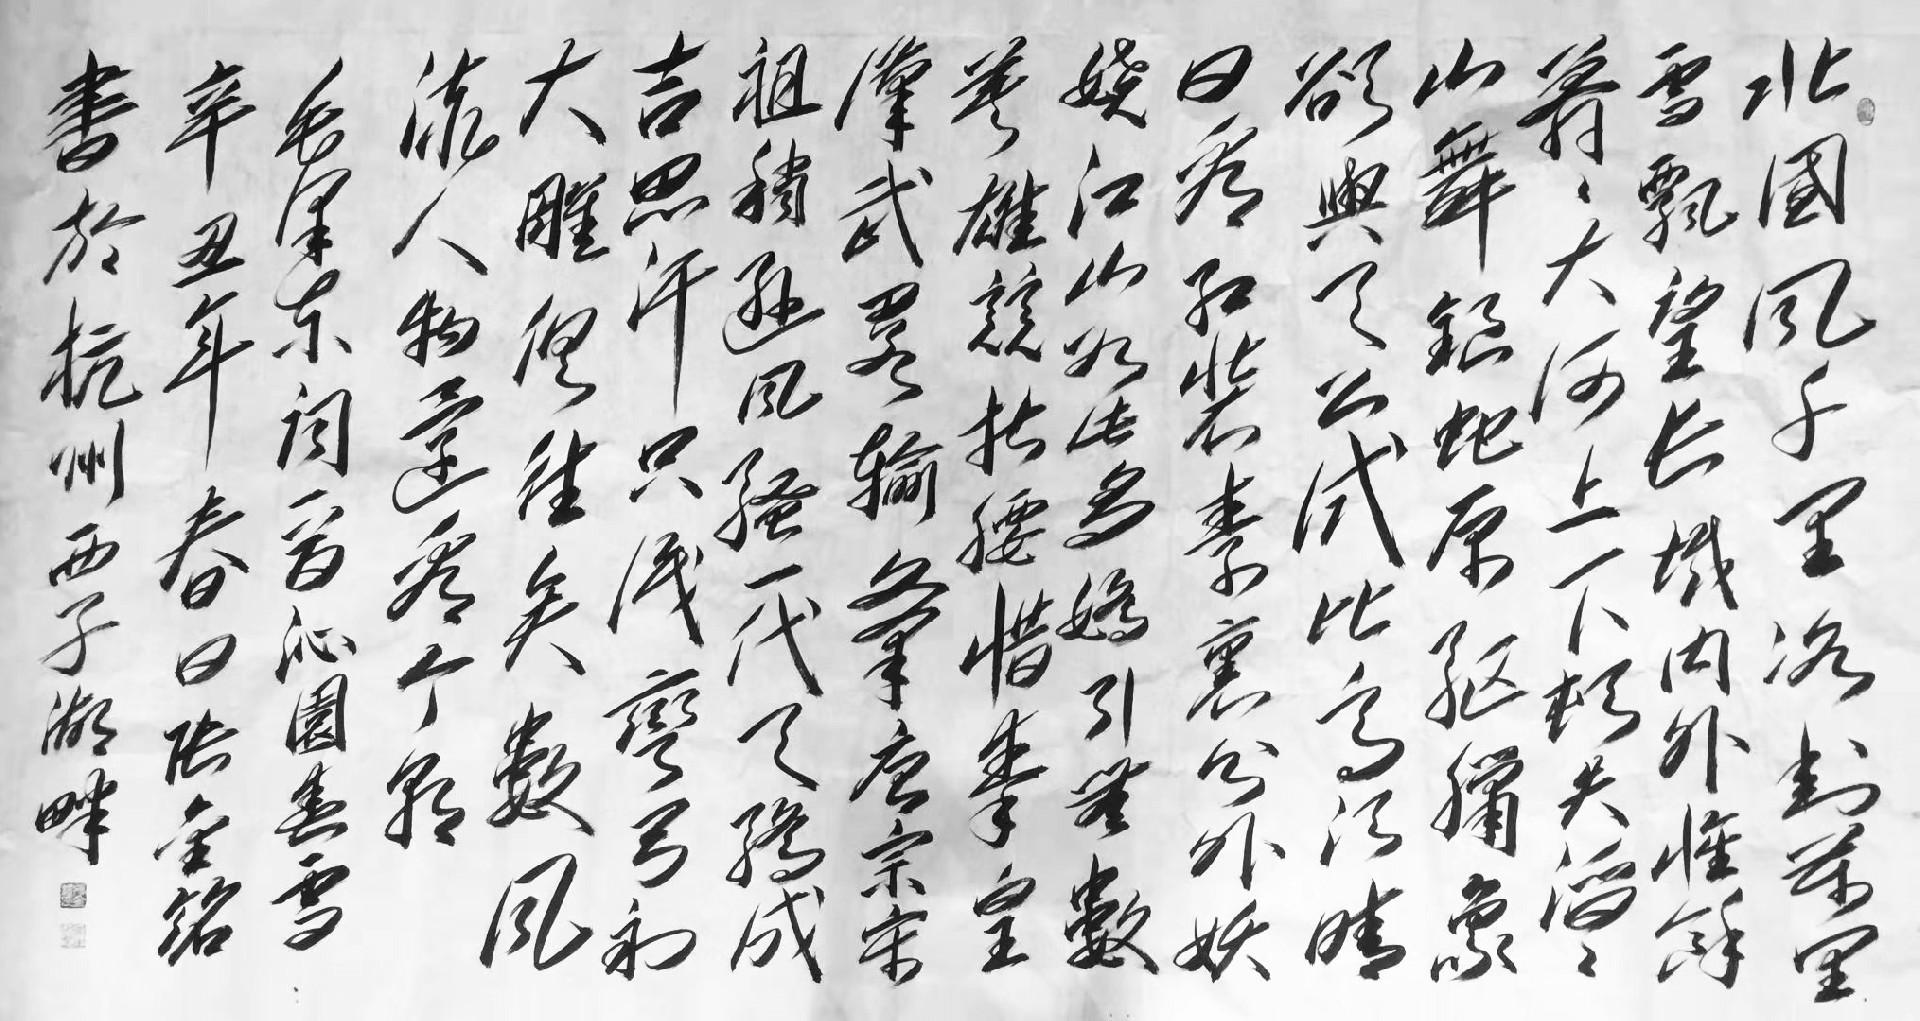 北國風千里冰封萬里
雪飄望长城内外惟餘
莽〻大河上下頓失滔〻
山舞銀蛇原驰臘象
欲與天公试比高须晴
日看红裝素裹分外妖
嬈江山如此多嬌引無數
英雄競折腰惜秦皇
漢武略輸文采唐宗宋
祖稍遜風騷一代天驕成
吉思汗只识彎弓射
大雕俱往矣數風
流人物還看今朝
毛澤东词一首沁園春雪
辛丑年春日张金銘
書於杭州西子湖畔